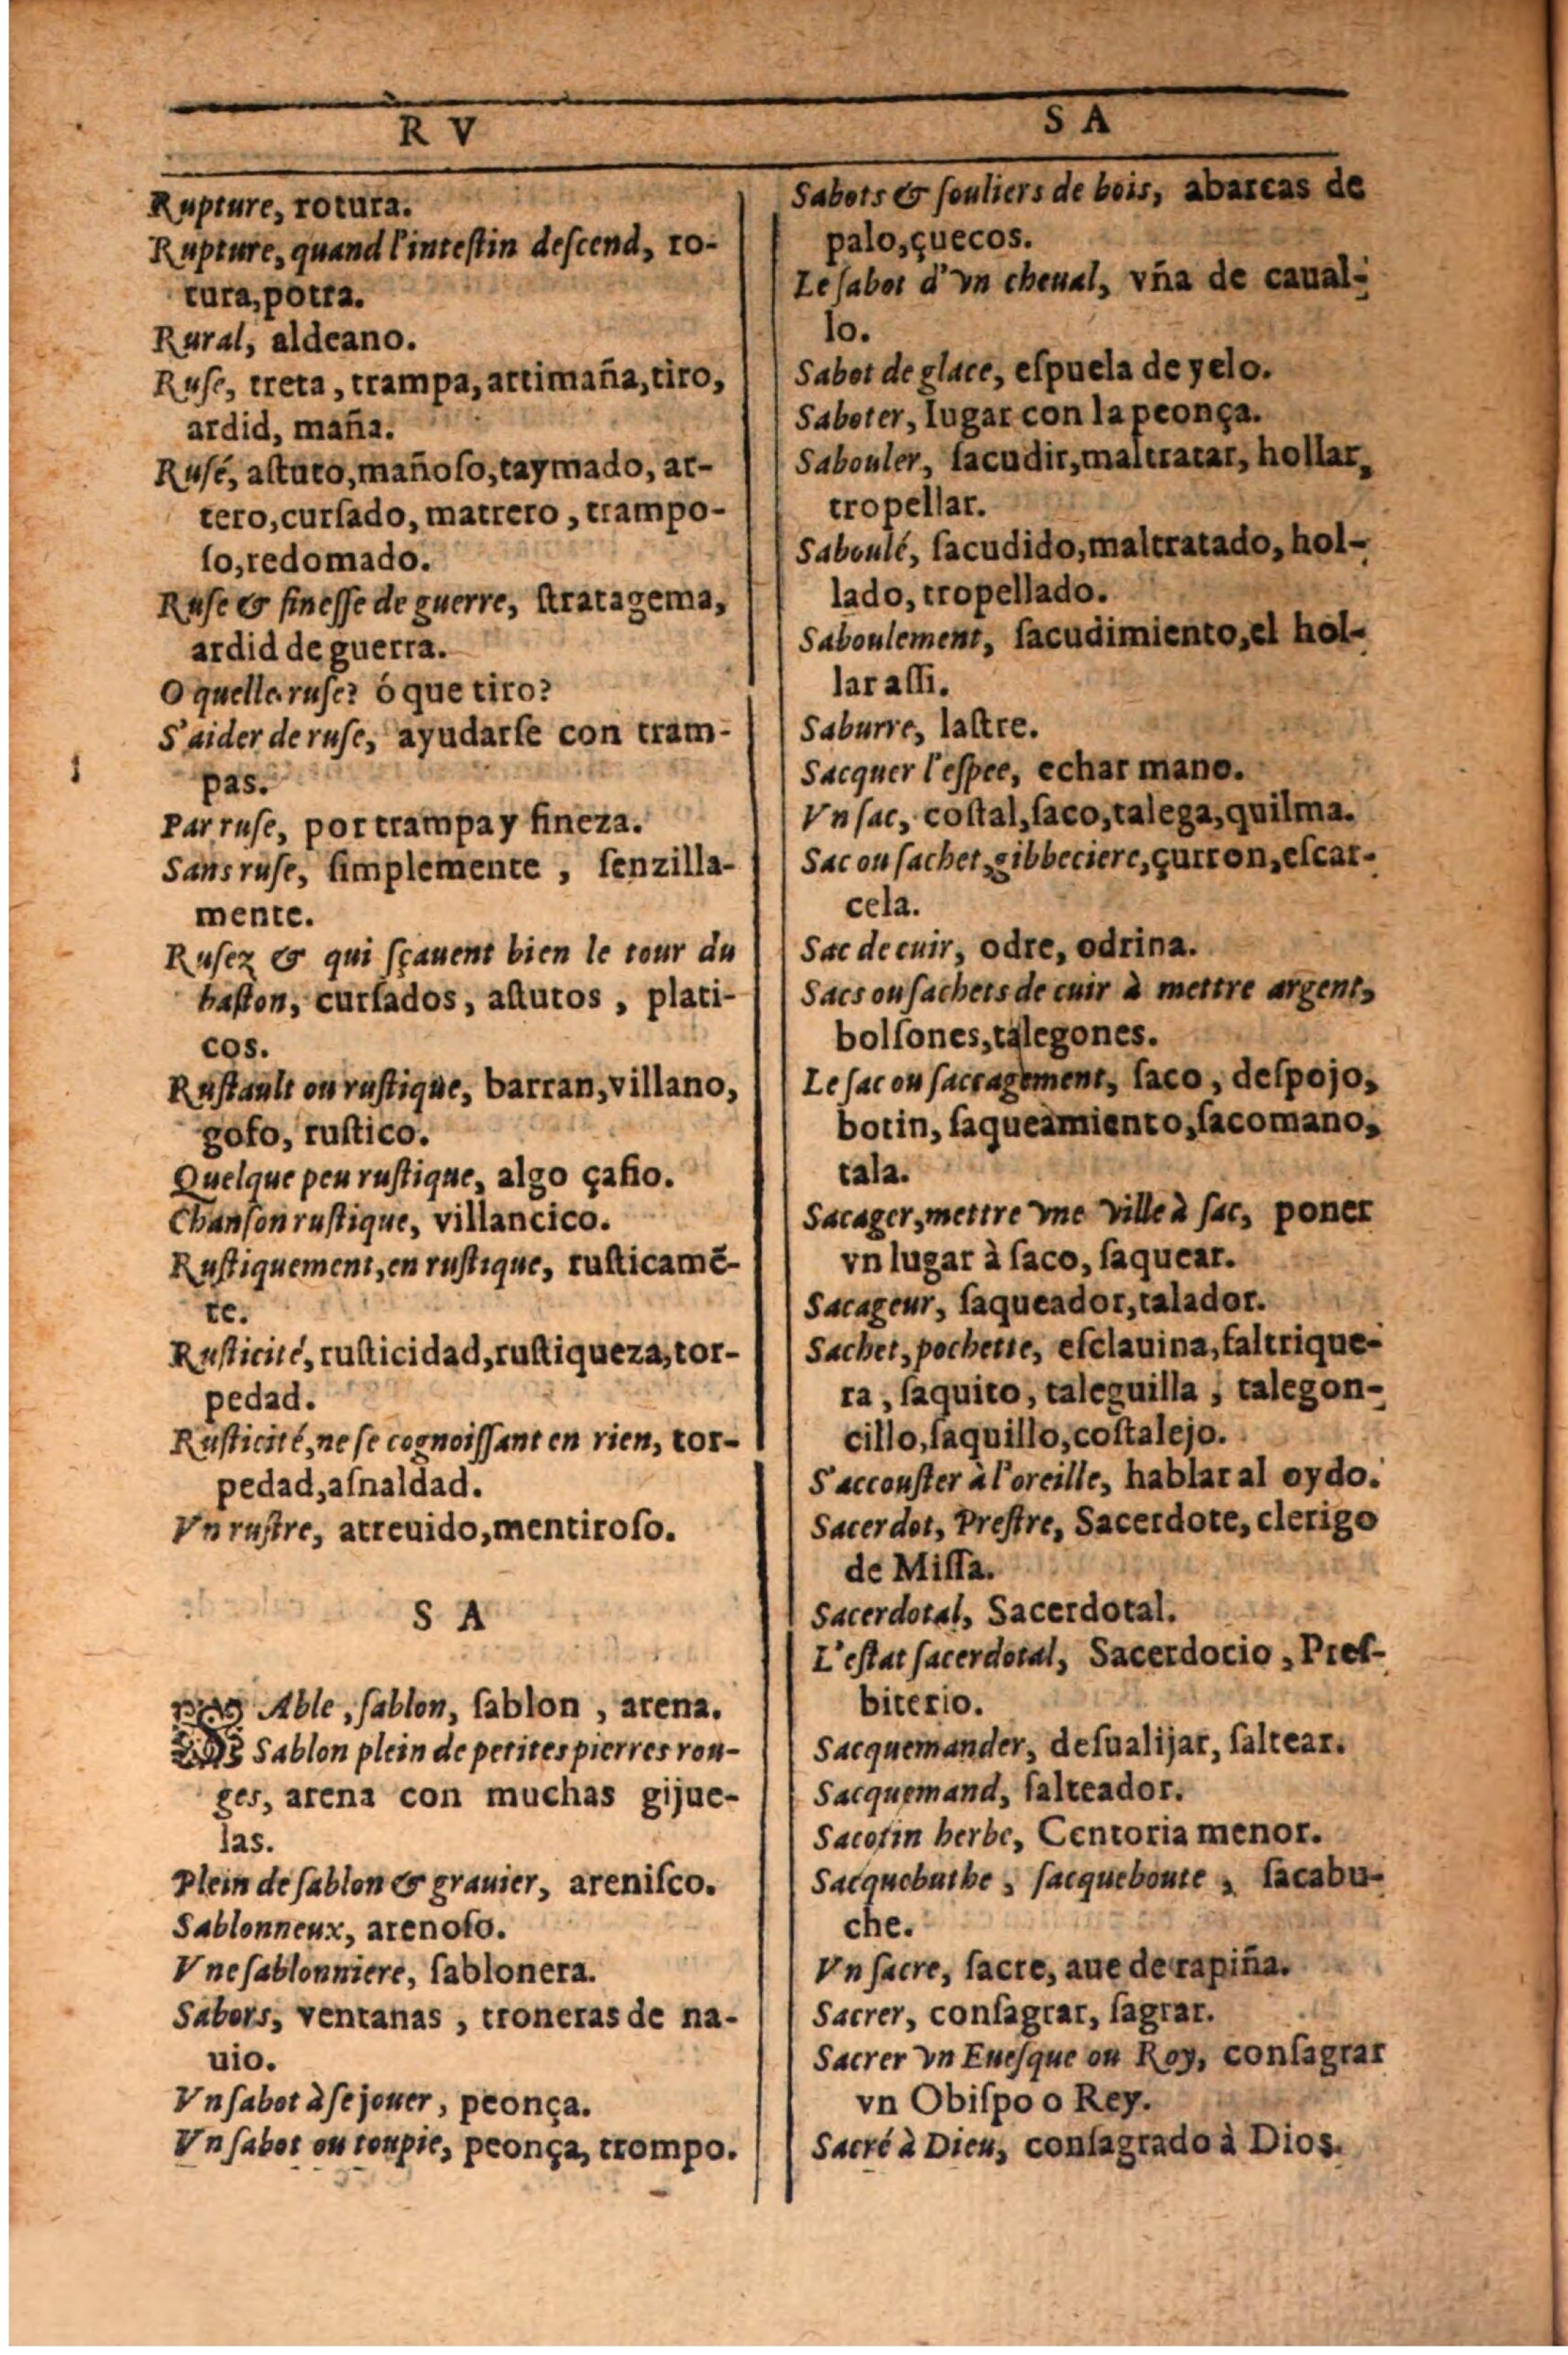 R V
Rupture, rotura.
Rupture, quand l'inteſtin deſcend, ro-
tura, potra.
Rural, aldeano.
Ruſe, treta, trampa, artimaña, tiro,
ardid, maña.
Ruſé, aſtuto, mañoſo, taymado, ar-
tero, curſado, matrero, trampo-
ſo, redomado.
Ruſe & fineſſe de guerre, ſtratagema,
ardid de guerra.
O quelle ruſe? ó que tiro?
S'aider de ruſe, ayudarſe con tram-
pas.
Par ruſe, por trampa y fineza.
Sans ruſe, ſimplemente, ſenzilla-
mente.
Ruſez & qui ſçauent bien le tour du
baſton, curſados, aſtutos, plati-
cos.
Ruſtault ou ruſtique, barran, villano,
gofo, ruſtico.
Quelque peu ruſtique, algo çafio.
Chanſon ruſtique, villancico.
Ruſtiquement, en ruſtique, ruſticamẽ-
te.
Ruſticité, ruſticidad, ruſtiqueza, tor-
pedad.
Ruſticité, ne ſe cognoiſſant en rien, tor-
pedad, aſnaldad.
Vn ruſtre, atreuido, mentiroſo.
S A
SAble, ſablon, ſablon, arena.
Sablon plein de petites pierres rou-
ges, arena con muchas gijue-
las.
Plein de ſablon & grauier, areniſco.
Sablonneux, arenoſo.
Vne ſablonniere, ſablonera.
Sabors, ventanas, troneras de na-
uio.
Vn ſabot à ſe jouer, peonça.
Vn ſabot ou toupie, peonça, trompo.
S A
Sabots & ſouliers de bois, abarcas de
palo, çuecos.
Le ſabot d'vn cheual, vña de caual-
lo.
Sabot de glace, eſpuela de yelo.
Saboter, Iugar con la peonça.
Sabouler, ſacudir, maltratar, hollar,
tropellar.
Saboulé, ſacudido, maltratado, hol-
lado, tropellado.
Saboulement, ſacudimiento, el hol-
lar aſſi.
Saburre, laſtre.
Sacquer l'eſpee, echar mano.
Vn ſac, coſtal, ſaco, talega, quilma.
Sac ou ſachet, gibbeciere, çurron, eſcar-
cela.
Sac de cuir, odre, odrina.
Sacs ou ſachets de cuir à mettre argent,
bolſones, talegones.
Le ſac ou ſaccagement, ſaco, deſpojo,
botin, ſaqueamiento, ſacomano,
tala.
Sacager, mettre vne ville à ſac, poner
vn lugar à ſaco, ſaquear.
Sacageur, ſaqueador, talador.
Sachet, pochette, eſclauina, faltrique-
ra, ſaquito, taleguilla, talegon-
cillo, ſaquillo, coſtalejo.
S'accouſter à l'oreille, hablar al oydo.
Sacerdot, Preſtre, Sacerdote, clerigo
de Miſſa.
Sacerdotal, Sacerdotal.
L'eſtat ſacerdotal, Sacerdocio, Preſ-
biterio.
Sacquemander, deſualijar, ſaltear.
Sacquemand, ſalteador.
Sacotin herbe, Centoria menor.
Sacquebuthe, ſacqueboute, ſacabu-
che.
Vn ſacre, ſacre, aue de rapiña.
Sacrer, conſagrar, ſagrar.
Sacrer vn Eueſque ou Roy, conſagrar
vn Obiſpo o Rey.
Sacré à Dieu, conſagrado à Dios.